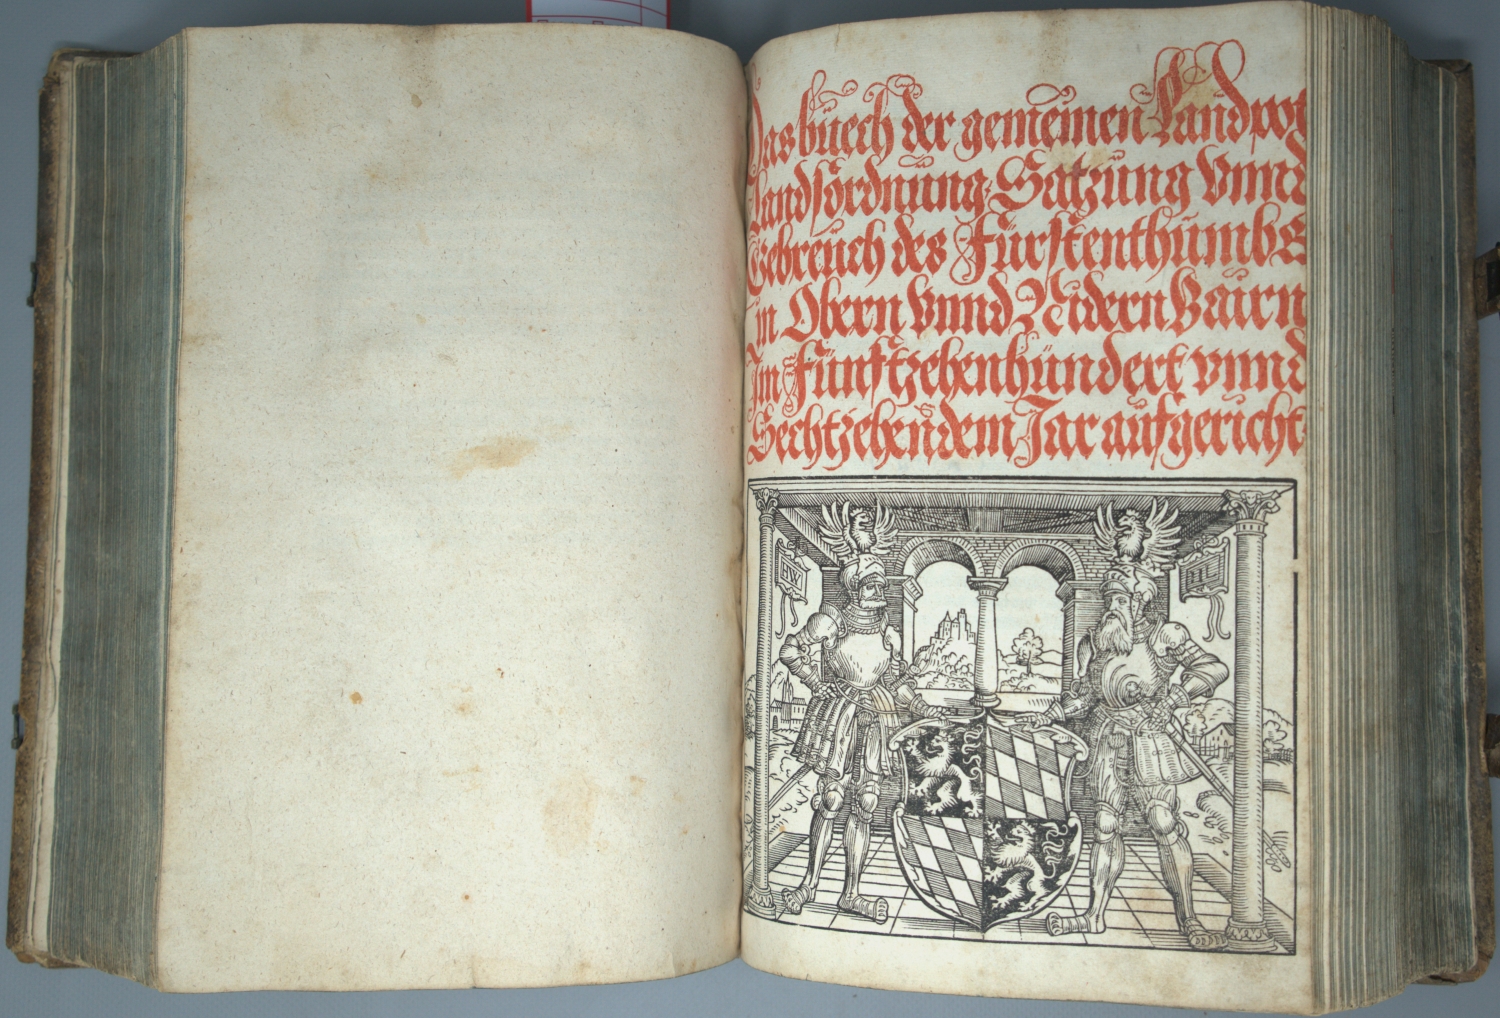 Das büech der gemeinen Landpot
Landsördnüng Satzüng Vnnd
Gebreüch des Fürstenthümbs
in Obern Vnnd Nidern Bairn
Im Fünftzehenhündert vnnd
Sechtzehendem Jar aufgericht
HW
HL